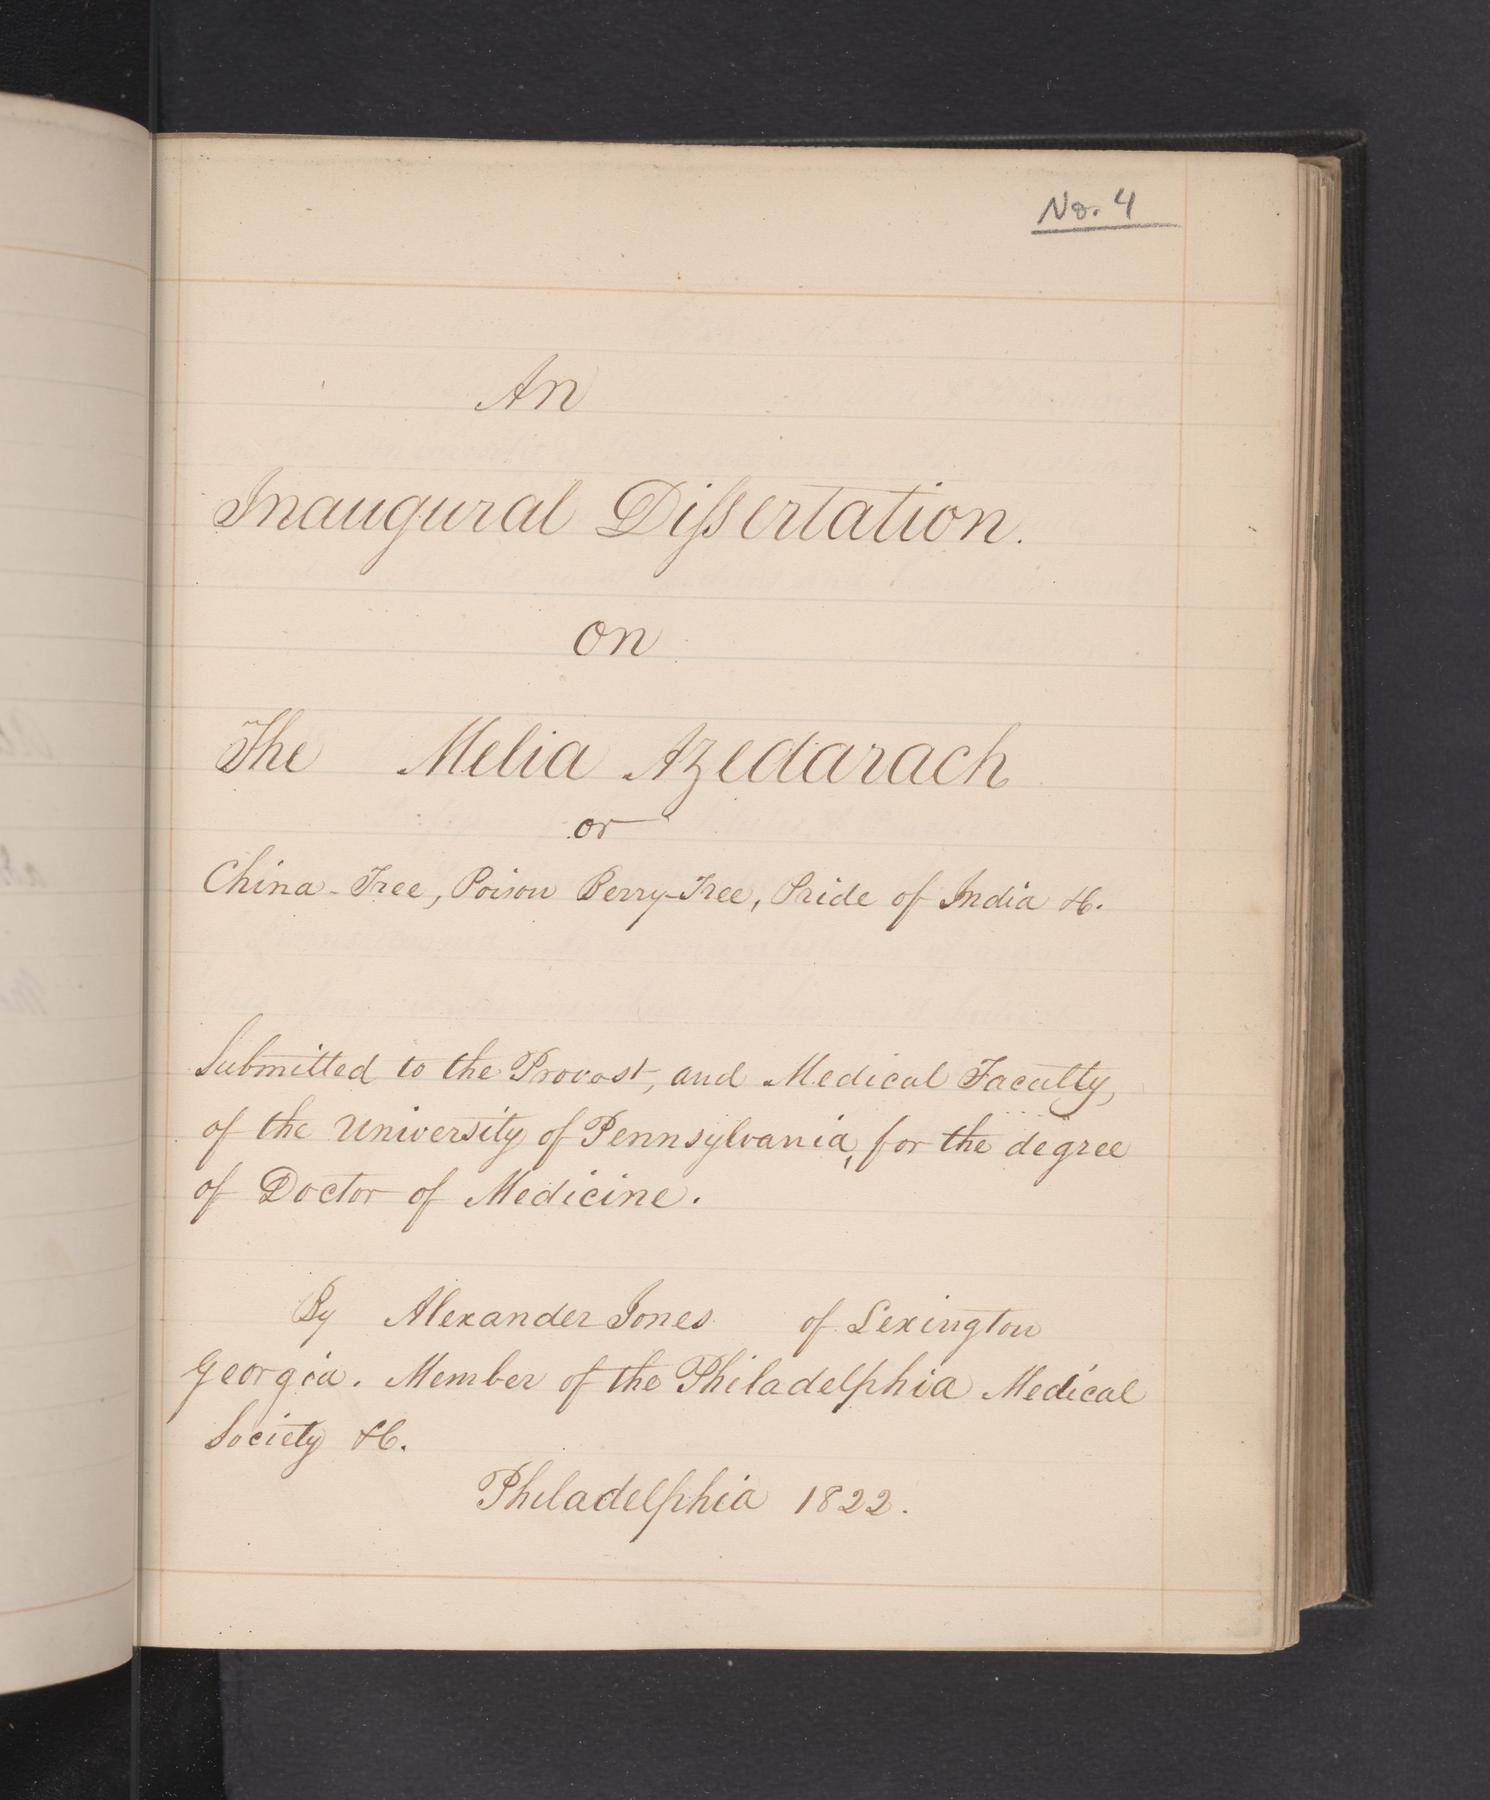 No. 4
An
Inaugural Dissertation.
on
The Melia Azedarach
or
China-Tree, Poison Berry-Tree, Pride of India &c.
Submitted to the Provost, and Medical Faculty,
of the University of Pennsylvania, for the degree
of Doctor of Medicine.
By Alexander Jones of Lexington
Georgia. Member of the Philadelphia Medical
Society &c.
Philadelphia 1822.